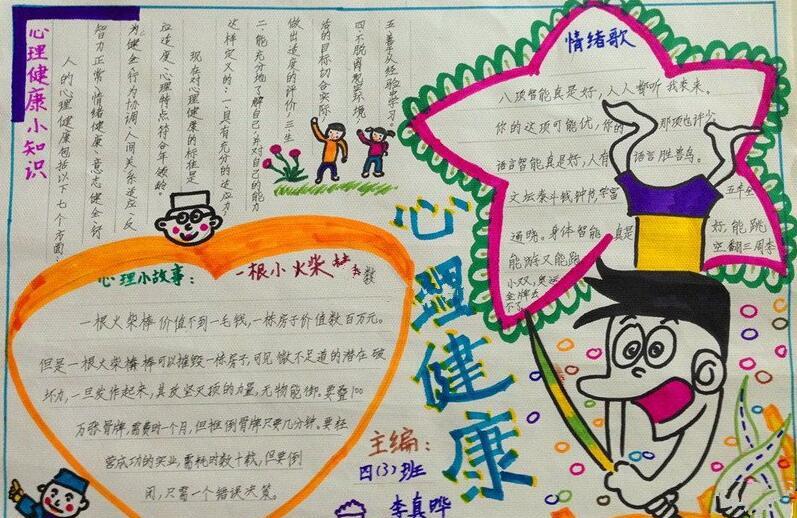 心理健康小知识
人的心理健康包括以下七个方面：
智力正常、情绪健康、意志健全、行
为健全、行为协调、人间关系适应、反
应适度、心理特点符合年龄。
现在对心理健康的标准是
这样定义的：一、具有充分的适应力，
二、能充分地了解自己，并对自己的能力
做出适度的评价，三、生
活的目标切合实际，
四、不脱离现实环境
五、善于从经验中学习。
情绪歌
八项智能真是好，人人都听我来来。
你的这项可能优，你的
那项也许少
语言智能真是好，人有
语言胜兽鸟。
文坛泰斗钱钟书学富
五车全
通晓。身体智能真是
好，能跳
能游又能跑
空翻三周李
小双，奥运
金牌
心理健康
心理小故事：
一根小火柴
一根火柴棒价值不到一毛钱，一栋房子价值数百万元。
但是一根火柴棒棒可以摧毁一栋房子，可见微不足道的潜在破
坏力，一旦发作起来，其攻坚灭顶的力量，无物能御。要叠100
万张骨牌，需费时一个月，但推倒骨牌只要几分钟。要经
营成功的实业，需耗时数十载，但要倒
闭，只需一个错误决策。
主编：
四(3)班
李真晔